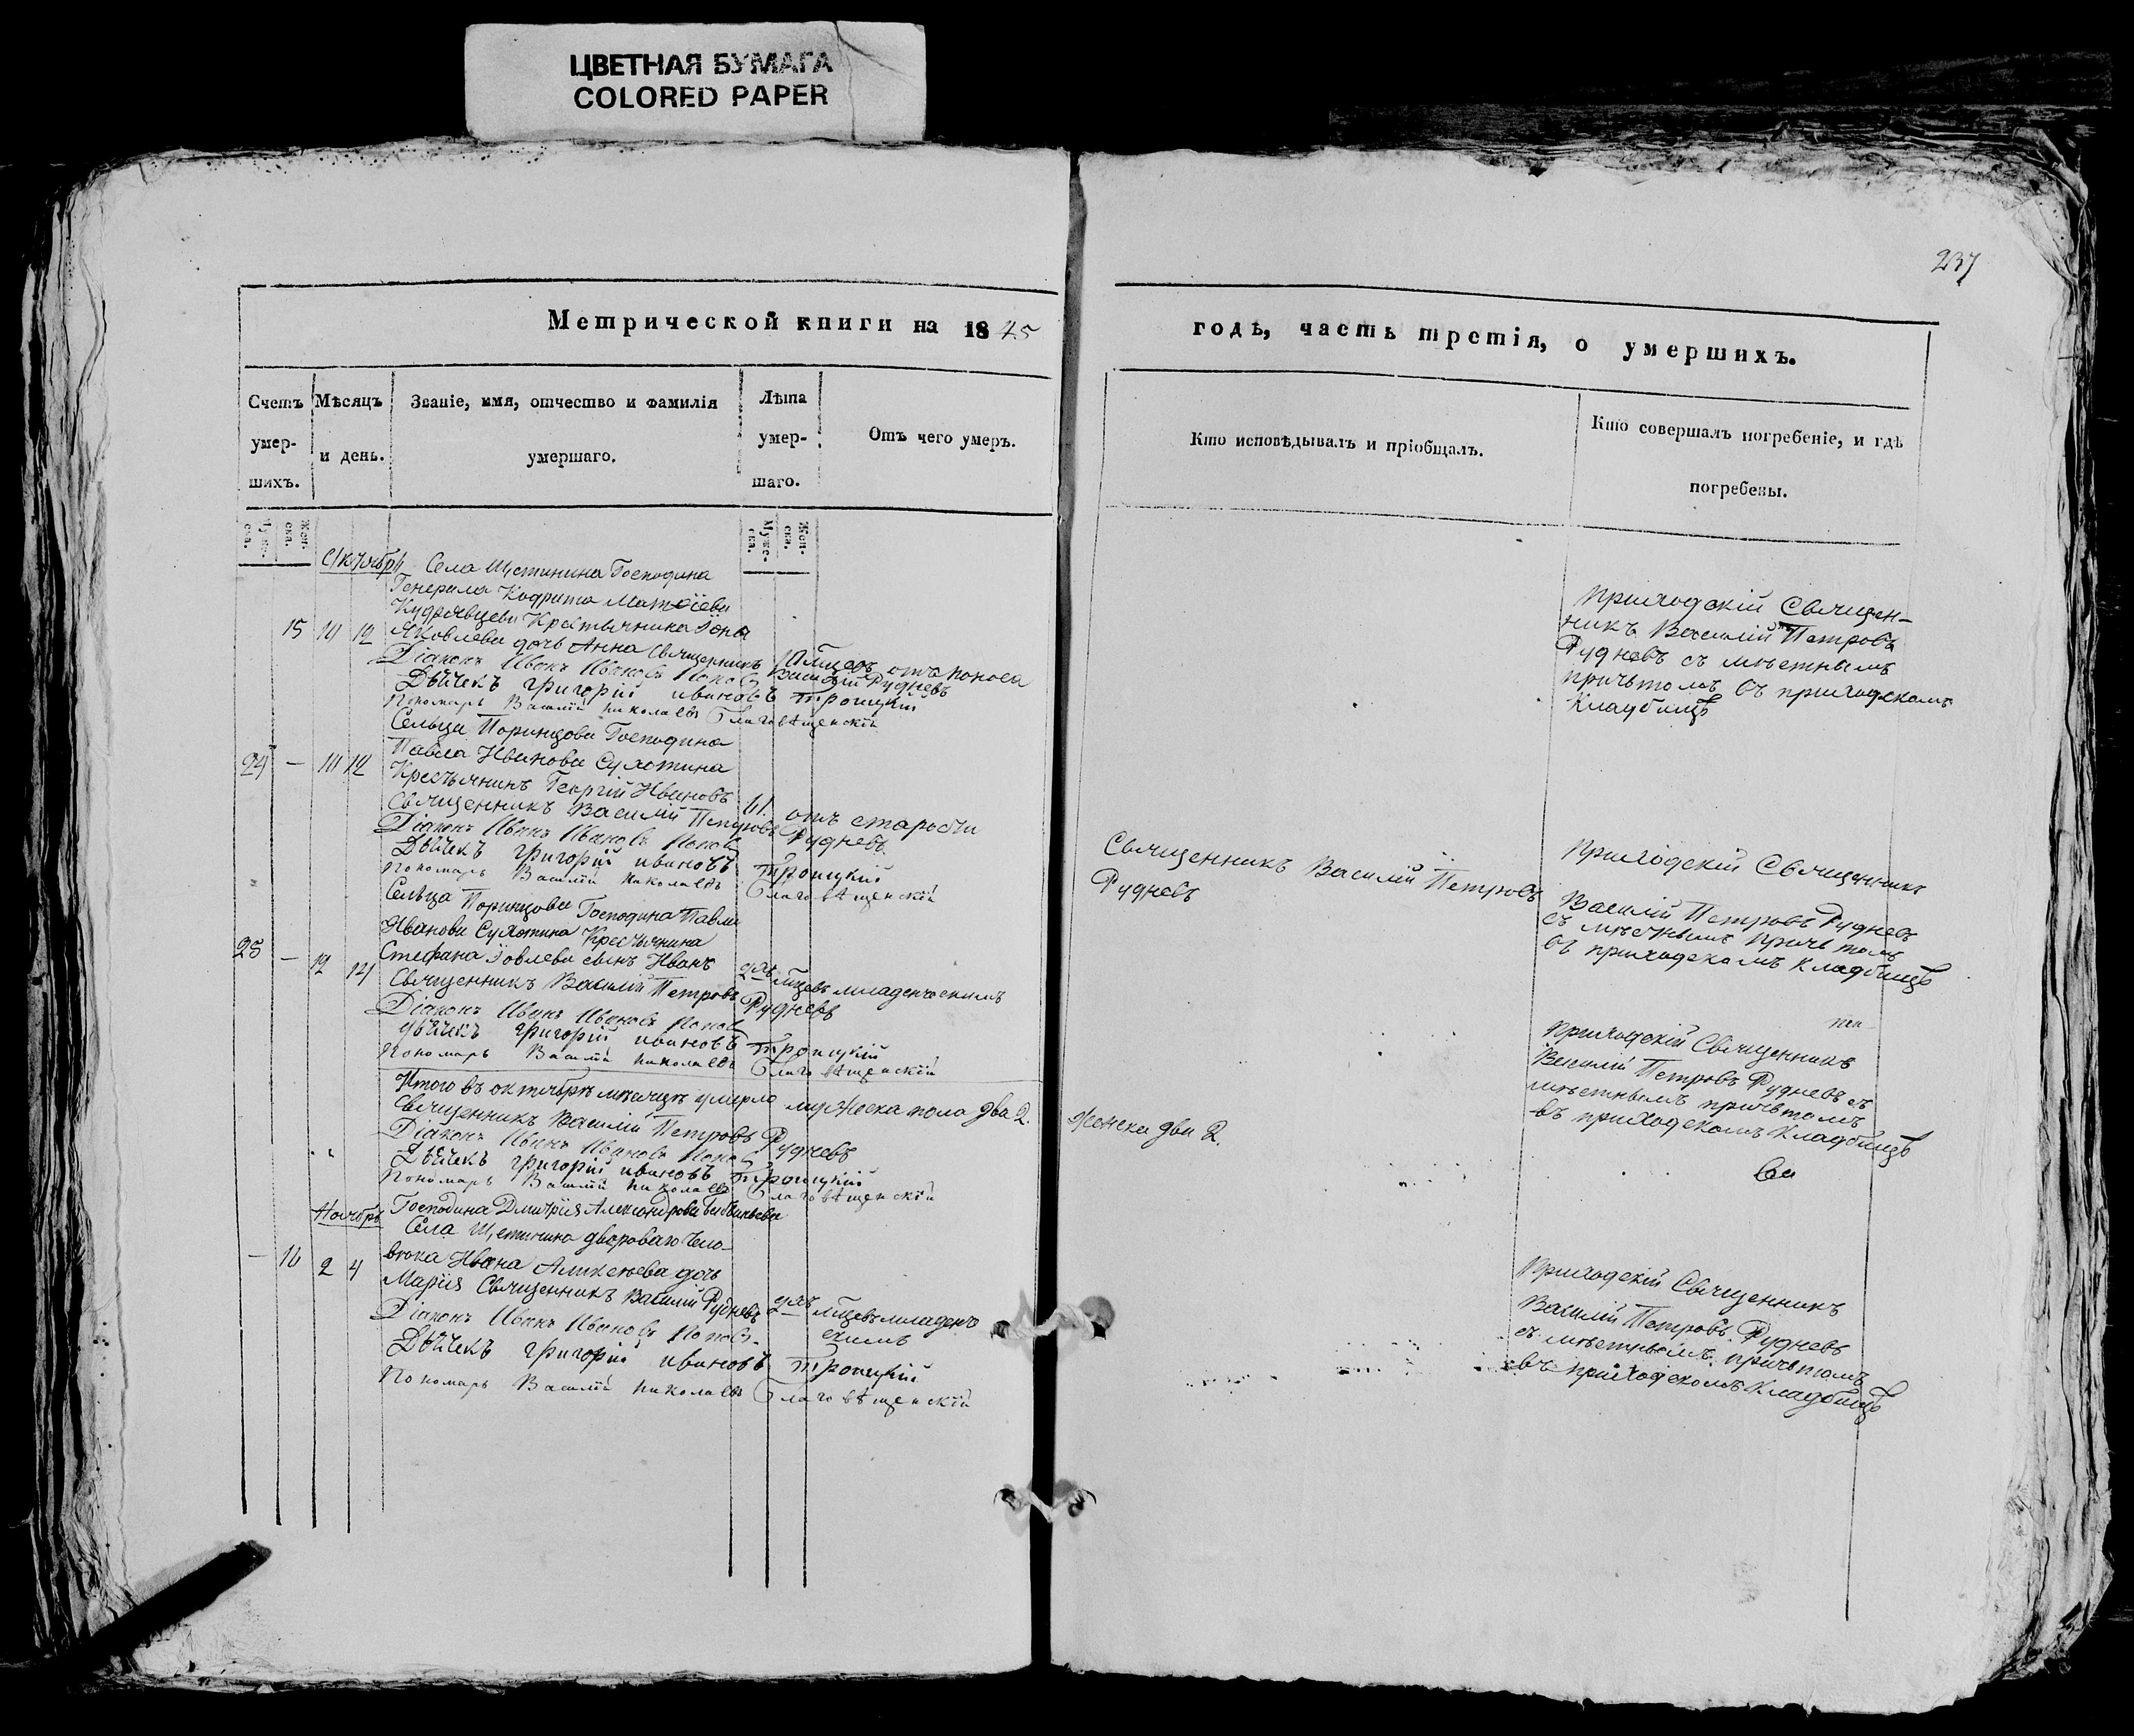 ЦВЕТНАЯ БУМАГА
COLORED PAPER
237
Метрической книги на 1845
годъ, часть третія, о умершихъ.
Счетъ умер-шихъ.
Мѣсяцъ и день.
Званіе, имя, отчество и фамилія умершаго.
Лѣта умер-шаго.
Отъ чего умеръ.
Кто исповѣдывалъ и пріобщалъ.
Кто совершалъ погребеніе, и гдѣ погребены.
Муже-ска.
Жен-ска.
Муже-ска.
Жен-ска.
Октябрь
Села Щетинина Господина
Генерала Матѳіева
Кудрявцева Крестьянина Іона
15
Яковлева дочь Анна Священникъ
отъ поноса
Діаконъ Иванъ Ивановъ Поповъ
Василій Рудневъ
Дьячекъ Григорій Ивановъ Троицкій
Пономарь Василій Николаевъ Благовѣщенскій
Приходскій Священ-
никъ Василій Петровъ
Рудневъ съ мѣстнымъ
причьтомъ въ приходскомъ
Кладбищѣ
Сельца Поринцова Господина
Павла Иванова Сухотина
24 —
Крестьянинъ Георгій Ивановъ
61
отъ старости
Священникъ Василій Петровъ Рудневъ
Діаконъ Иванъ Ивановъ Поповъ
Дьячекъ Григорій Ивановъ Троицкій
Пономарь Василій Николаевъ Благовѣщенскій
Священникъ Василій Петровъ
Рудневъ
Приходскій Священникъ
Василій Петровъ Рудневъ
съ мѣстнымъ причьтомъ
въ приходскомъ Кладбищѣ
Сельца Поринцова Господина Павла
Иванова Сухотина Крестьянина
25 — 12 14
Стефана Іовлева сынъ Иванъ
младенческимъ
Священникъ Василій Петровъ Рудневъ
Діаконъ Иванъ Ивановъ Поповъ
Дьячекъ Григорій Ивановъ Троицкій
Пономарь Василій Николаевъ Благовѣщенскій
Приходскій Священникъ
Василій Петровъ Рудневъ съ
мѣстнымъ причьтомъ
въ приходскомъ Кладбищѣ
Итого въ октябрѣ мѣсяцѣ умерло мужеска пола два 2. Женска два 2.
Священникъ Василій Петровъ Рудневъ
Діаконъ Иванъ Ивановъ Поповъ
Дьячекъ Григорій Ивановъ Троицкій
Пономарь Василій Николаевъ Благовѣщенскій
Ноябрь
Господина Дмитрія Александрова
Села Щетинина двороваго чело-
— 16 2 4
вѣка Ивана дочь
Марія Священникъ Василій Рудневъ
младенче
скимъ
Діаконъ Иванъ Ивановъ Поповъ
Дьячекъ Григорій Ивановъ Троицкій
Пономарь Василій Николаевъ Благовѣщенскій
Приходскій Священникъ
Василій Петровъ Рудневъ
съ мѣстнымъ причьтомъ
въ приходскомъ Кладбищѣ